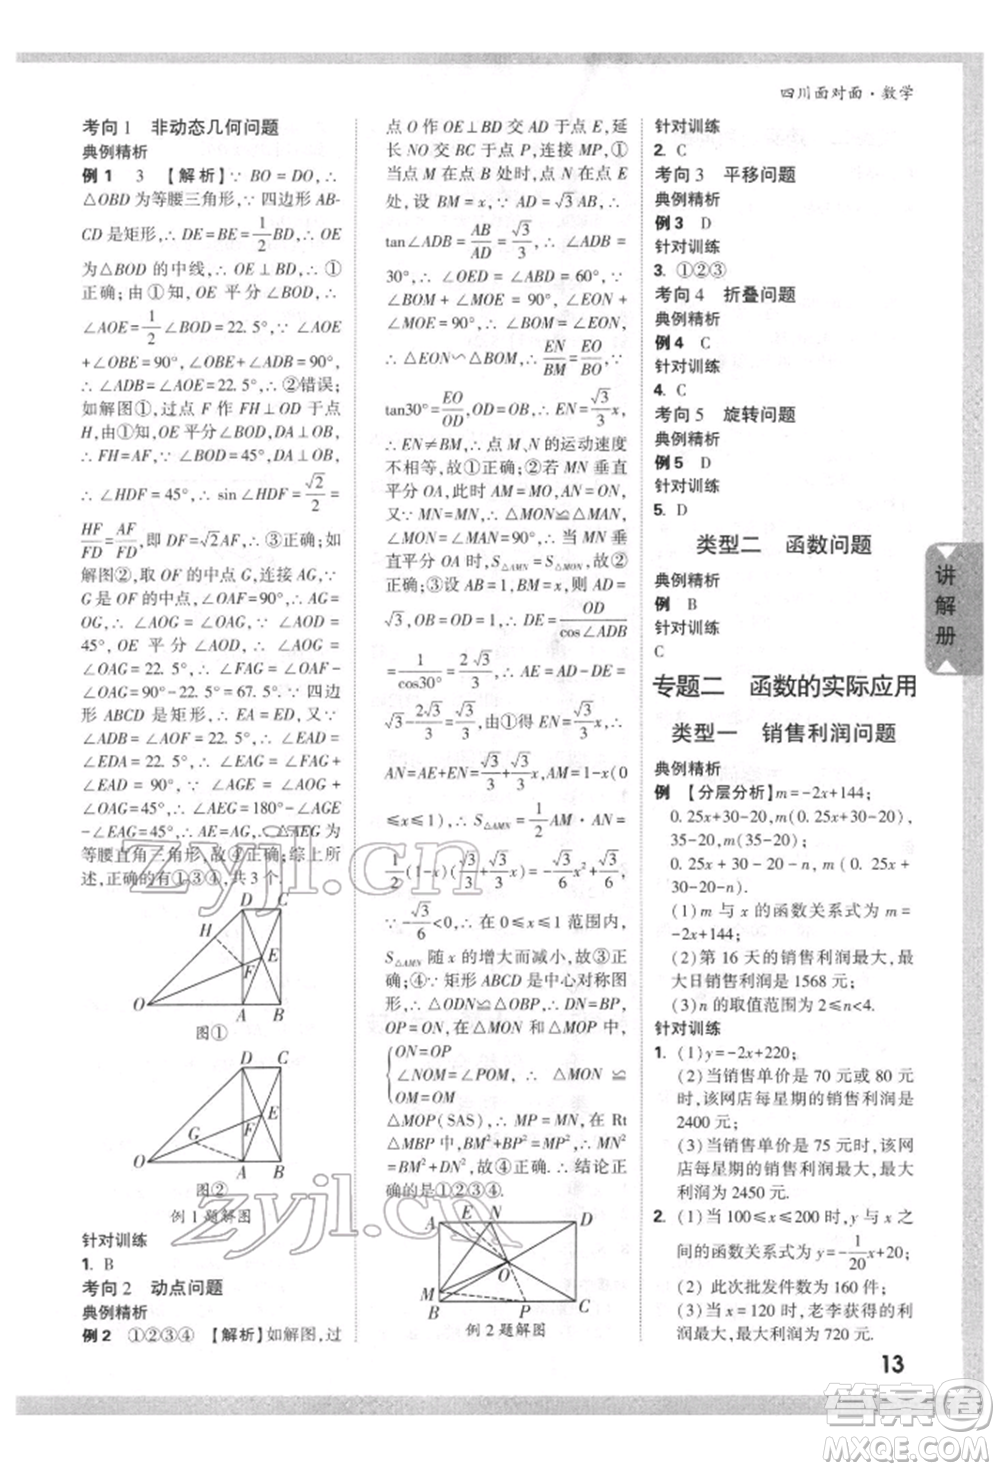 四川面对面·数学
考向 1 非动态几何问题
典例精析
例 1 3 【解析】∵ BO = DO,∴
△OBD 为等腰三角形,∵ 四边形 AB-
CD 是矩形,∴ DE = BE = 1/2 BD,∴ OE
为△BOD 的中线,∴ OE ⊥ BD,∴ ①
正确;由①知,OE 平分∠BOD,∴
∠AOE = 1/2 ∠BOD = 22. 5°,∵ ∠AOE
+∠OBE = 90°,∠ADB+∠OBE = 90°,
∴ ∠ADB = ∠AOE = 22. 5°,∴ ②错误;
如解图①,过点 F 作 FH⊥OD 于点
H,由①知,OE 平分∠BOD,DA⊥OB,
∴ FH = AF,∵ ∠BOD = 45°,DA⊥OB,
∴ ∠HDF = 45°,∴ sin∠HDF = √2/2 =
HF/FD = AF/FD,即 DF = √2 AF,∴ ③正确;如
解图②,取 OF 的中点 G,连接 AG,∵
G 是 OF 的中点,∠OAF = 90°,∴ AG =
OG,∴ ∠AOG = ∠OAG,∵ ∠AOD =
45°,OE 平分∠AOD,∴ ∠AOG =
∠OAG = 22. 5°,∴ ∠FAG = ∠OAF-
∠OAG = 67. 5°,∠ADB = 22. 5°,∵ 四边
形 ABCD 是矩形,∴ EA = ED,∴ ∠EAD =
∠EDA = 22. 5°,∵ ∠EAG = ∠EAD
+∠FAG = 90°,∠AGE = ∠AOG
+∠OAG = 45°,∴ ∠AEG = 180°-∠AGE
-∠EAG = 45°,∴ AE = AG,∴ △AEG 为
等腰直角三角形,故④正确;综上所
述,正确的有①③④,共 3 个.
D C H E F O A B
图①
D C G E F O A B
图②
例 1 题解图
针对训练
1. B
考向 2 动点问题
典例精析
例 2 ①②③④ 【解析】如解图,过
点 O 作 OE⊥BD 交 AD 于点 E,延
长 NO 交 BC 于点 P,连接 MP,①
当点 M 在点 B 处时,点 N 在点 E
处,设 BM = x,∵ AD = √3 AB,∴
tan∠ADB = AB/AD = √3/3,∴ ∠ADB =
30°,∴ ∠OED = ∠ABD = 60°,∵
∠BOM + ∠MOE = 90°, ∠EON +
∠MOE = 90°,∴ ∠BOM = ∠EON,
∴ △EON∽△BOM,∴ EN/BM = EO/BO,∵
tan30° = EO/OD,OD=OB,∴ EN = √3/3 x,
∴ EN≠BM,∴ 点 M、N 的运动速度
不相等,故①正确;②若 MN 垂直
平分 OA,此时 AM = MO,AN = NO,
又∵ MN = MN,∴ △MNO≌△MAN,
∴ ∠MON = ∠MAN = 90°,∴ 当 MN
垂直平分 AO 时,S△AMN = S△OMN,故②
正确;③设 AB = 1,BM = x,则 AD =
√3,OB = OD = 1,∴ DE = OD/cos∠ADB
= 1/cos30° = 2√3/3,∴ AE = AD - DE =
√3 - 2√3/3 = √3/3,由①得 EN = √3/3 x,∴
AN = AE+EN = √3/3 + √3/3 x,AM = 1-x(0
≤x≤1),∴ S△AMN = 1/2 AM · AN =
1/2 (1-x)(√3/3 + √3/3 x) = √3/6 - √3/6 x²,
∵ -√3/6 <0,∴ 在 0≤x≤1 范围内,
S△AMN 随 x 的增大而减小,故③正
确;④∵ 矩形 ABCD 是中心对称图
形,∴ △ODN≌△OBP,∴ DN=BP,
OP = ON,在△MON 和△MOP 中,
ON = OP
∠NOM = ∠POM, ∴ △MON≌
OM = OM
△MOP(SAS),∴ MP = MN,在 Rt
△MBP 中,BM²+BP² = MP²,∴ BM²
+DN² = MN²,故④正确.∴ 结论正
确的序号是①②③④.
A E N D O M B P C
例 2 题解图
针对训练
2. C
考向 3 平移问题
典例精析
例 3 D
针对训练
3. ①②③
考向 4 折叠问题
典例精析
例 4 C
针对训练
4. C
考向 5 旋转问题
典例精析
例 5 D
针对训练
5. D
类型二 函数问题
典例精析
例 B
针对训练
C
专题二 函数的实际应用
类型一 销售利润问题
典例精析
例 【分层分析】m = -2x+144;
0. 25x+30-20,m(0. 25x+30-20),
35-20,m(35-20);
0. 25x + 30 - 20 - n,m(0. 25x +
30-20-n).
(1) m 与 x 的函数关系式为 m =
-2x+144;
(2)第 16 天的销售利润最大,最
大日销售利润是 1568 元;
(3)n 的取值范围为 2≤n<4.
针对训练
1. (1)y=-2x+220;
(2)当销售单价是 70 元或 80 元
时,该网店每星期的销售利润是
2400 元;
(3)当销售单价是 75 元时,该网
店每星期的销售利润最大,最大
利润为 2450 元.
2. (1)当 100≤x≤200 时,y 与 x 之
间的函数关系式为 y = -1/20 x+20;
(2) 此次批发件数为 160 件;
(3)当 x = 120 时,老李获得的利
润最大,最大利润为 720 元.
讲解册
13
zyjl.cn
zyjl.cn
答案卷
MXQE.COM